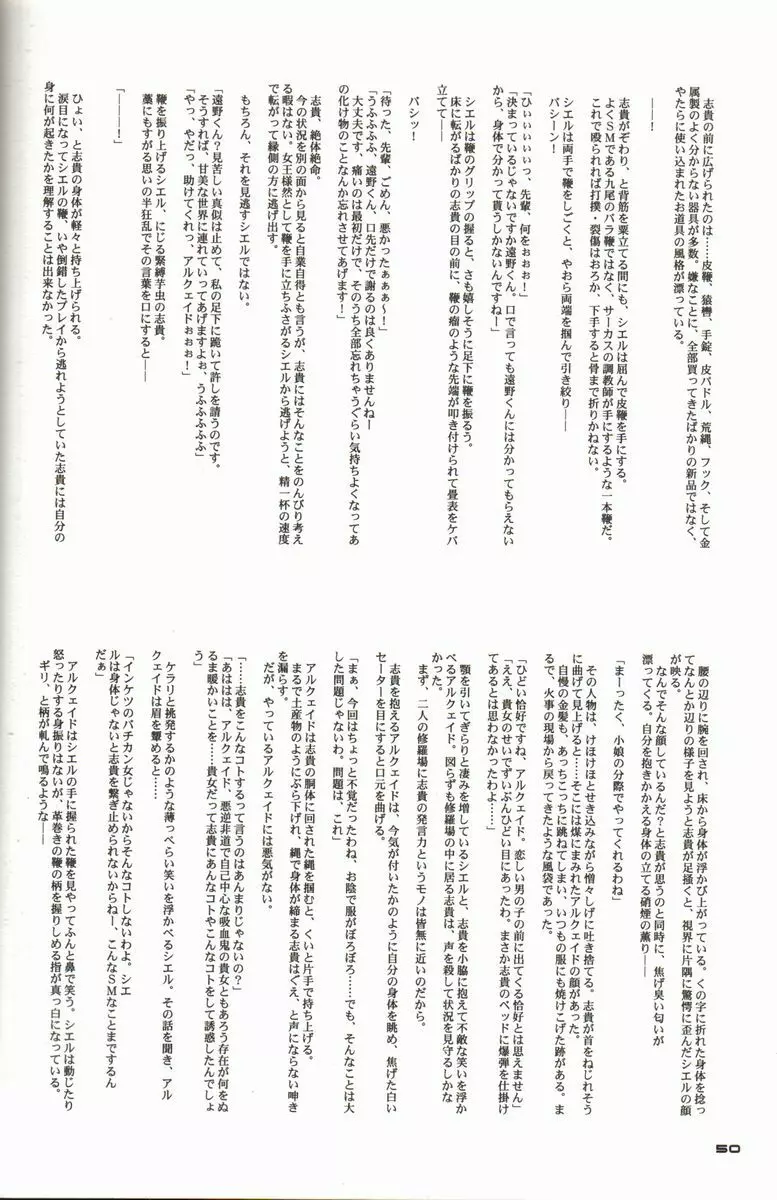 志貴の前に広げられたのは……皮鞭、猿轡、手錠、皮パドル、荒縄、フック、そして金
属製のよく分からない器具が多数。嫌なことに、全部買ってきたばかりの新品ではなく、
やたらに使い込まれたお道具の風格が漂っている。
「――！
　志貴がぞわり、と背筋を粟立てる間にも、シエルは屈んで皮鞭を手にする。
よくSMである九尾のバラ鞭ではなく、サーカスの調教師が手にするような一本鞭だ。
これで殴られれば打撲・裂傷はおろか、下手すると骨まで折りかねない。
　シエルは両手で鞭をしごくと、やおら両端を掴んで引き絞り――
　バシーン！
「ひぃぃぃぃぃっ、先輩、何をぉぉぉ！」
「決まっているじゃないですか遠野くん。口で言っても遠野くんには分かってもらえない
から、身体で分かって貰うしかないんですねー」
　シエルは鞭のグリップの握ると、さも嬉しそうに足下に鞭を振るう。
　床に転がるばかりの志貴の目の前に、鞭の瘤のような先端が叩き付けられて畳表をケバ
立てて――
　バシッ！
「待った、先輩、ごめん、悪かったぁぁぁ～！」
「うふふふふ、遠野くん、口先だけで謝るのは良くありませんねー
　大丈夫です、痛いのは最初だけで、そのうち全部忘れちゃうぐらい気持ちよくなってあ
の化け物のことなんか忘れさせてあげます！」
　志貴、絶体絶命。
　今の状況を別の面から見ると自業自得とも言うが、志貴にはそんなことをのんびり考え
る暇はない。女王様然として鞭を手に立ちふさがるシエルから逃げようと、精一杯の速度
で転がって縁側の方に逃げ出す。
　もちろん、それを見逃すシエルではない。
「遠野くん？見苦しい真似は止めて、私の足下に跪いて許しを請うのです。
　そうすれば、甘美な世界に連れていってあげますよぉ、うふふふふふ」
「やっ、やだっ、助けてくれっ、アルクェイドぉぉぉ！」
　鞭を振り上げるシエル、にじる緊縛芋虫の志貴。
　藁にもすがる思いの半狂乱でその言葉を口にすると――
「―――！」
　ひょい、と志貴の身体が軽々と持ち上げられる。
　涙目になってシエルの鞭、いや倒錯したプレイから逃れようとしていた志貴には自分の
身に何が起きたかを理解することは出来なかった。
　腰の辺りに腕を回され、床から身体が浮かび上がっている。くの字に折れた身体を捻っ
てなんとか辺りの様子を見ようと志貴が足掻くと、視界に片隅に驚愕に歪んだシエルの顔
が映る。
　なんでそんな顔しているんだ？と志貴が思うのと同時に、焦げ臭い匂いが
漂ってくる。自分を抱きかかえる身体の立てる硝煙の薫り――
「まーったく、小娘の分際でやってくれるわね」
　その人物は、けほけほとせき込みながら憎々しげに吐き捨てる。志貴が首をねじれそう
に曲げて見上げると……そこには煤にまみれたアルクェイドの顔があった。
　自慢の金髪も、あっちこっちに跳ねてしまい、いつもの服にも焼けこげた跡がある。ま
るで、火事の現場から戻ってきたような風袋であった。
「ひどい恰好ですね、アルクェイド。恋しい男の子の前に出てくる恰好とは思えません」
「ええ、貴女のせいでずいぶんひどい目にあったわ。まさか志貴のベッドに爆弾を仕掛け
てあるとは思わなかったわよ……」
　顎を引いてぎらりと凄みを増しているシエルと、志貴を小脇に抱えて不敵な笑いを浮か
べるアルクェイド。図らずも修羅場の中に居る志貴は、声を殺して状況を見守るしかな
かった。
　まず、二人の修羅場に志貴の発言力というモノは皆無に近いのだから。
　志貴を抱えるアルクェイドは、今気が付いたかのように自分の身体を眺め、焦げた白い
セーターを目にすると口元を曲げる。
「まぁ、今回はちょっと不覚だったわね、お陰で服がぼろぼろ……でも、そんなことは大
した問題じゃないわ。問題は、これ」
　アルクェイドは志貴の胴体に回された縄を掴むと、くいと片手で持ち上げる。
　まるで土産物のようにぶら下げれ、縄で身体が締まる志貴はぐえ、と声にならない呻き
を漏らす。
　だが、やっているアルクェイドには悪気がない。
「……志貴をこんなコトするって言うのはあんまりじゃないの？」
「あははは、アルクェイド、悪逆非道で自己中心な吸血鬼の貴女ともあろう存在が何をぬ
るま暖かいことを……貴女だって志貴にあんなコトやこんなコトをして誘惑したんでしょ
う」
　ケラリと挑発するかのような薄っぺらい笑いを浮かべるシエル。その話を聞き、アル
クェイドは眉を顰めると……
「インケツのバチカン女じゃないからそんなコトしないわよ。シエ
ルは身体じゃないと志貴を繋ぎ止められないからねー、こんなSMなことまでするん
だぁ」
　アルクェイドはシエルの手に握られた鞭を見やってふんと鼻で笑う。シエルは動じたり
怒ったりする身振りはないが、革巻きの鞭の柄を握りしめる指が真っ白になっている。
　ギリ、と柄が軋んで鳴るような――
50